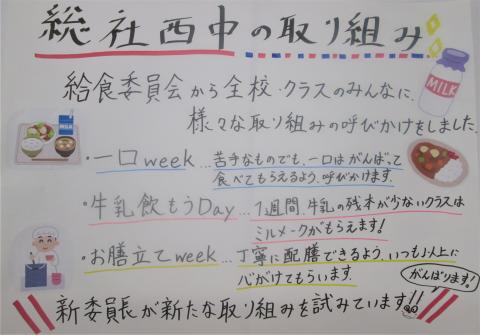 総社西中の取り組み
給食委員会から全校・クラスのみんなに、
様々な取り組みの呼びかけをしました。
・一口week…苦手なものでも、一口はがんばって
食べてもらえるよう、呼びかけます。
・牛乳飲もうDay…1週間、牛乳の残本が少ないクラスは
ミルメークがもらえます!
・お膳立てweek…丁寧に配膳できるよう、いつも以上に
心がけてもらいます。
がんばります!
新委員長が新たな取り組みを試みています!!
MILK